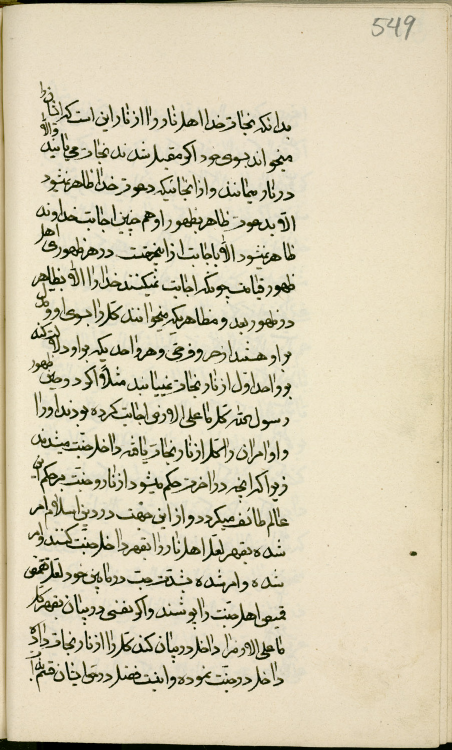 549
بدانکه نجات خدا اهل نار را از نار این است که ایشان را
میخواند بسوی خود اگر مقبل شدند نجات می یابند والا
در نار میمانند و از انجائیکه دعوت خدا ظاهر نمیشود
الا بدعوت ظاهر بظهور او همچنین اجابت خداوند
ظاهر نمیشود الا باجابت او از این جهت در هر ظهوری اهل
ظهور قیامت چونکه اجابت نمیکنند خدا را الا بظاهر
در ظهور بعد و مظاهریکه میخوانند کل را بسوی او و دل
بر او هستند از حروف حی و هر واحدیکه بر او دلالت کند
بر واحد اول از نار نجات نمییابند مثلا اگر در حین ظهور
رسول الله کل ما علی الارض اجابت کرده بودند او را
و اوامر ان را کل از نار نجات یافته داخل جنت میشدند
زیرا که انچه در اخرت حکم میشود از نار و جنت مر حکم این
عالم طائف میگردد و از این جهت در دین اسلام امر
شده بقهر لعل اهل نار را بقهر داخل جنت کنند و امر
شده و امر شده شدت حب در مابین خود لعل قمیص
قمیص اهل جنت را پوشند و اگر نفسی در بیان بقهر کل
ما علی الارض را داخل در بیان کند کل را از نار نجات داده
داخل در جنت نموده و اینست فضل در حق ایشان